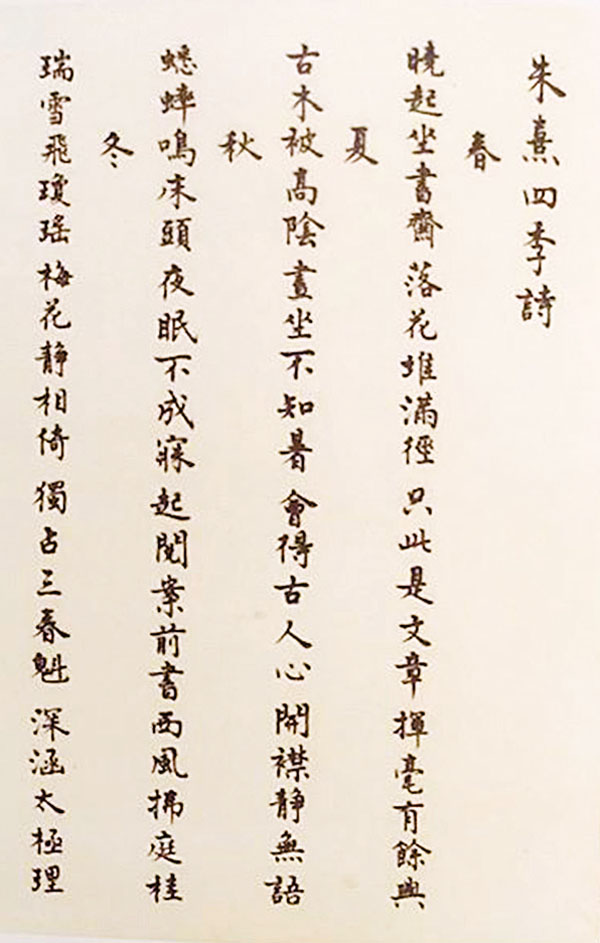 朱熹四季詩
春
曉起坐書齋落花堆滿徑只此是文章揮毫有餘興
夏
古木被高陰晝坐不知暑會得古人心開襟靜無語
秋
蟋蟀鳴床頭夜眠不成寐起閱案前書西風拂庭桂
冬
瑞雪飛瓊瑤梅花靜相倚獨占三春魁深涵太極理